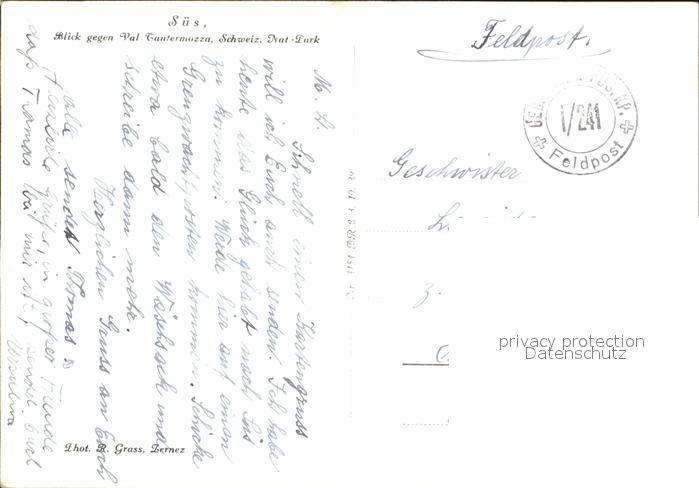 Süs,
Blick gegen Val Tantermozza, Schweiz. Nat-Park
M. L.
Schnell einen Kartengruss
will ich Euch auch senden. Ich habe
heute das Glück gehabt nach Süs
zu kommen. Werde hier auf einen
Grenzwachtposten kommen. Schicke
etwa bald den Wäschsack und
schreibe dann mehr.
Herzlichen Gruss an Euch
alle sendet Tomas
in großer Freude
daß Tomas bei mir ist, sendet Euch
Phot. R. Grass, Zernez
Feldpost.
I/241
Feldpost
Geschwister
Z.
privacy protection
Datenschutz